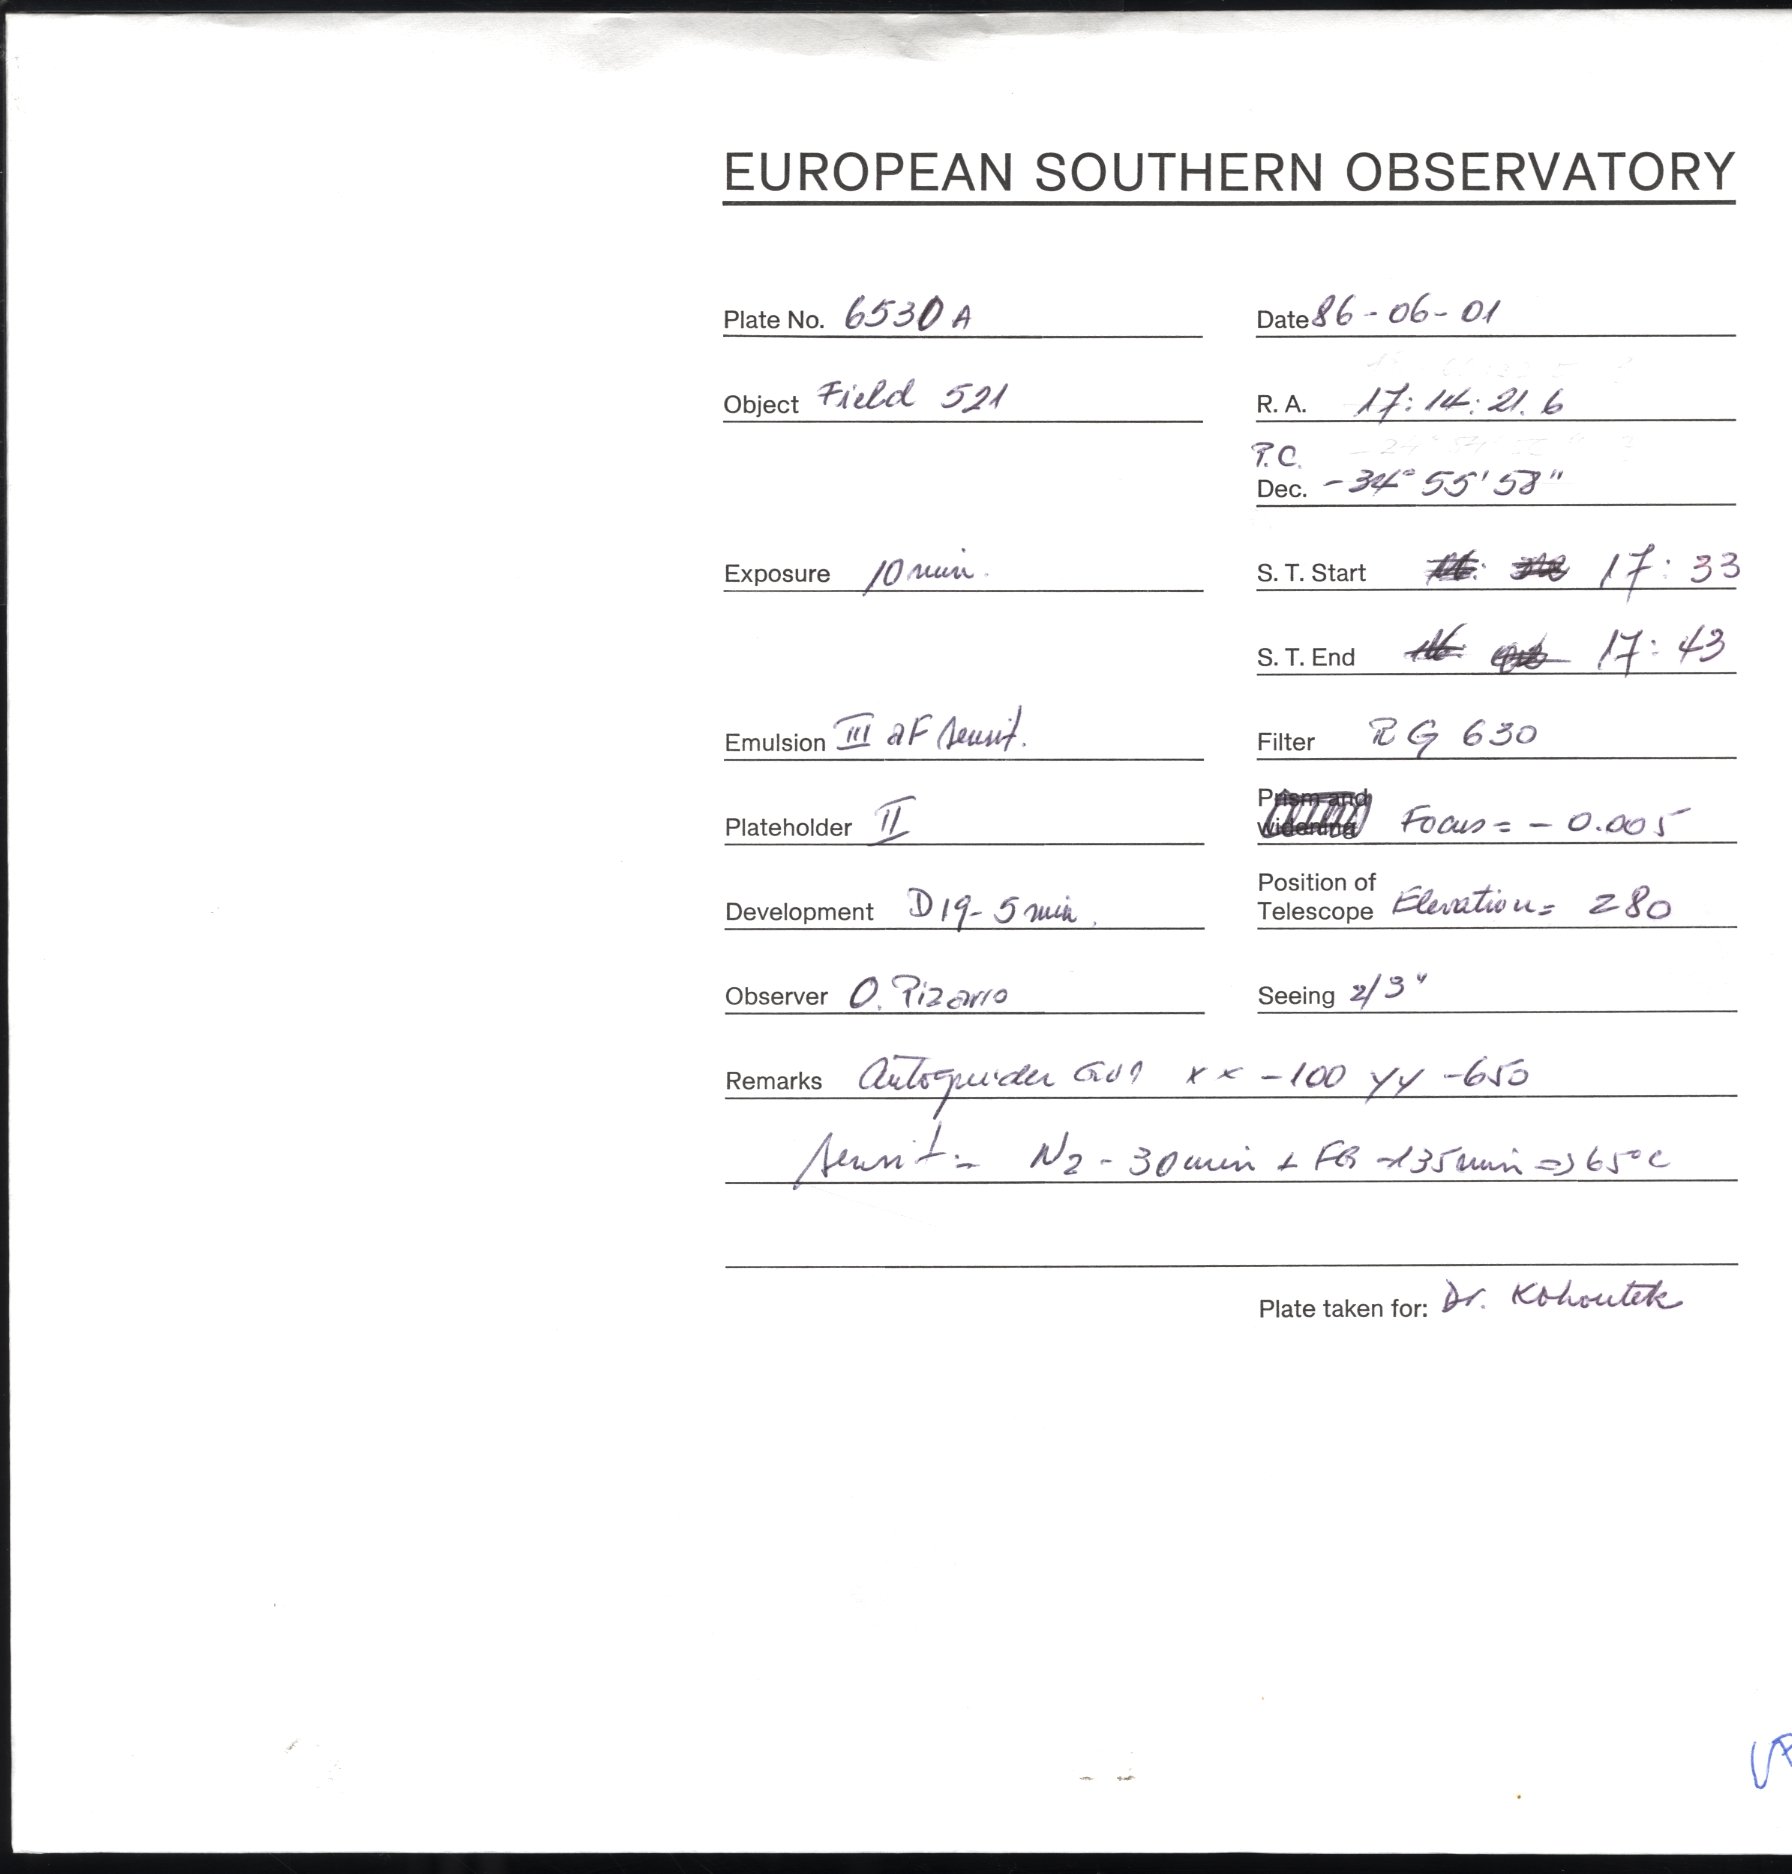 EUROPEAN SOUTHERN OBSERVATORY
Plate No. 6530 A Date 86-06-01
Object Field 521 R. A. 17:14:21.6
P.C.
Dec. -34° 55' 58"
Exposure 10 min. S. T. Start 17:33
S. T. End 17:43
Emulsion III aF sensit. Filter RG 630
Prism and
Plateholder II widening Focus = - 0.005
Position of
Development D19 - 5 min. Telescope Elevation = 280
Observer O. Pizarro Seeing 2/3"
Remarks Autoguider xx -100 yy -650
Sensit = N2 - 30 min + FG -135 min => 65°C
Plate taken for: Dr. Kohoutek